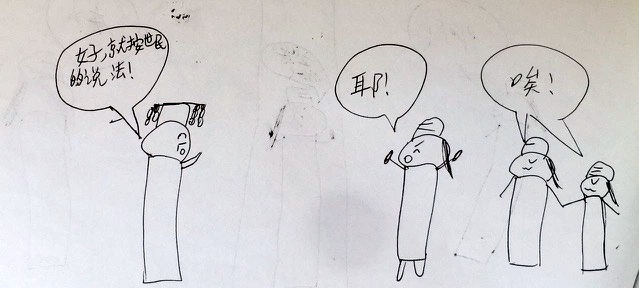 好,就按世民
的说法!
耶!
唉!